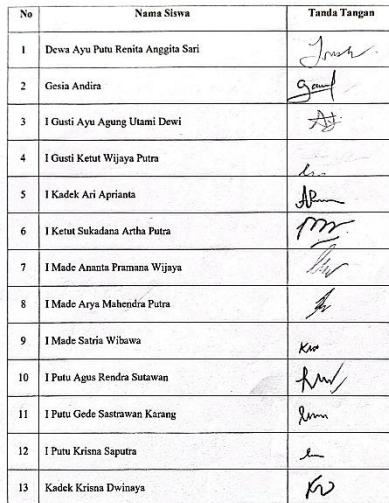 No Nama Siswa Tanda Tangan
1 Dewa Ayu Putu Renita Anggita Sari
2 Gesia Andira
3 I Gusti Ayu Agung Utami Dewi
4 I Gusti Ketut Wijaya Putra
5 I Kadek Ari Aprianta
6 I Ketut Sukadana Artha Putra
7 I Made Ananta Pramana Wijaya
8 I Made Arya Mahendra Putra
9 I Made Satria Wibawa
10 I Putu Agus Rendra Sutawan
11 I Putu Gede Sastrawan Karang
12 I Putu Krisna Saputra
13 Kadek Krisna Dwinaya